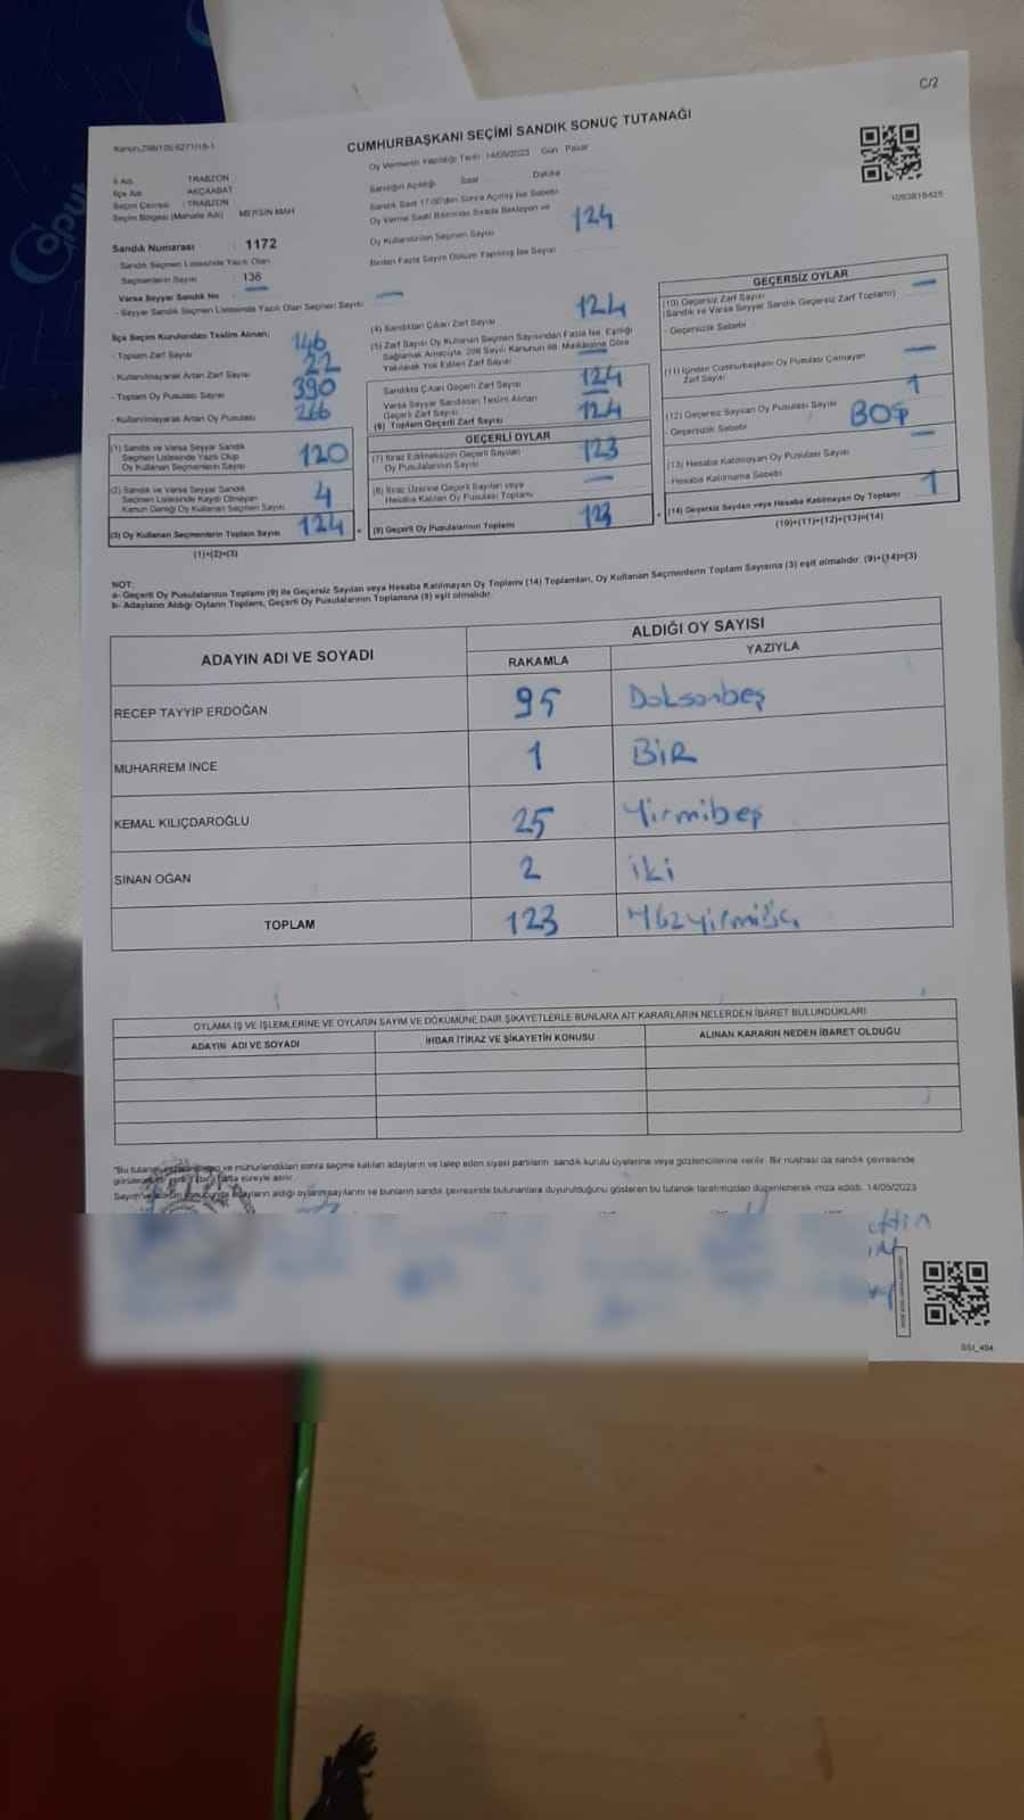 C/2
CUMHURBAŞKANI SEÇİMİ SANDIK SONUÇ TUTANAĞI
Oy Vermenin Yapıldığı Tarih : 14/05/2023 Gün : Pazar
İl Adı : TRABZON
İlçe Adı : AKÇAABAT
Seçim Çevresi : TRABZON
Seçim Bölgesi (Mahalle Adı) : MERSİN MAH
Sandık Numarası : 1172
Sandık Seçmen Listesinde Yazılı Olan
Seçmenlerin Sayısı : 136
Varsa Seyyar Sandık No : —
- Seyyar Sandık Seçmen Listesinde Yazılı Olan Seçmen Sayısı : —
Sandığın Açıldığı Saat Dakika
Sandık Saat 17:00'den Sonra Açılmış İse Sebebi
Oy Verme Saati Bitiminde Sırada Bekleyen ve
Oy Kullandırılan Seçmen Sayısı 124
Birden Fazla Sayım Döküm Yapılmış İse Sayısı
İlçe Seçim Kurulundan Teslim Alınan;
- Toplam Zarf Sayısı 146
- Kullanılmayarak Artan Zarf Sayısı 22
- Toplam Oy Pusulası Sayısı 390
- Kullanılmayarak Artan Oy Pusulası 266
(1) Sandık ve Varsa Seyyar Sandık
Seçmen Listesinde Yazılı Olup
Oy Kullanan Seçmenlerin Sayısı 120
(2) Sandık ve Varsa Seyyar Sandık
Seçmen Listesinde Kaydı Olmayan
Kanun Gereği Oy Kullanan Seçmen Sayısı 4
(3) Oy Kullanan Seçmenlerin Toplam Sayısı 124
(1)+(2)=(3)
(4) Sandıktan Çıkan Zarf Sayısı 124
(5) Zarf Sayısı Oy Kullanan Seçmen Sayısından Fazla İse, Eşitliği
Sağlamak Amacıyla, 298 Sayılı Kanunun 98. Maddesine Göre
Yakılarak Yok Edilen Zarf Sayısı —
Sandıkta Çıkan Geçerli Zarf Sayısı 124
Varsa Seyyar Sandıktan Teslim Alınan
Geçerli Zarf Sayısı
(6) Toplam Geçerli Zarf Sayısı 124
GEÇERLİ OYLAR
(7) İtiraz Edilmeksizin Geçerli Sayılan
Oy Pusulalarının Sayısı 123
(8) İtiraz Üzerine Geçerli Sayılan veya
Hesaba Katılan Oy Pusulası Toplamı —
(9) Geçerli Oy Pusulalarının Toplamı 123
GEÇERSİZ OYLAR
(10) Geçersiz Zarf Sayısı
(Sandık ve Varsa Seyyar Sandık Geçersiz Zarf Toplamı) —
- Geçersizlik Sebebi
(11) İçinden Cumhurbaşkanı Oy Pusulası Çıkmayan
Zarf Sayısı —
(12) Geçersiz Sayılan Oy Pusulası Sayısı 1
- Geçersizlik Sebebi BOŞ
(13) Hesaba Katılmayan Oy Pusulası Sayısı —
- Hesaba Katılmama Sebebi
(14) Geçersiz Sayılan veya Hesaba Katılmayan Oy Toplamı 1
(10)+(11)+(12)+(13)=(14)
NOT:
a- Geçerli Oy Pusulalarının Toplamı (9) ile Geçersiz Sayılan veya Hesaba Katılmayan Oy Toplamı (14) Toplamları, Oy Kullanan Seçmenlerin Toplam Sayısına (3) eşit olmalıdır. (9)+(14)=(3)
b- Adayların Aldığı Oyların Toplamı, Geçerli Oy Pusulalarının Toplamına (9) eşit olmalıdır.
ADAYIN ADI VE SOYADI ALDIĞI OY SAYISI
RAKAMLA YAZIYLA
RECEP TAYYİP ERDOĞAN 95 Doksanbeş
MUHARREM İNCE 1 BİR
KEMAL KILIÇDAROĞLU 25 Yirmibeş
SİNAN OĞAN 2 iki
TOPLAM 123 Yüzyirmiüç
OYLAMA İŞ VE İŞLEMLERİNE VE OYLARIN SAYIM VE DÖKÜMÜNE DAİR ŞİKAYETLERLE BUNLARA AİT KARARLARIN NELERDEN İBARET BULUNDUKLARI
ADAYIN ADI VE SOYADI İHBAR İTİRAZ VE ŞİKAYETİN KONUSU ALINAN KARARIN NEDEN İBARET OLDUĞU
ve mühürlendikten sonra seçime katılan adayların ve talep eden siyasi partilerin sandık kurulu üyelerine veya gözlemcilerine verilir. Bir nüshası da sandık çevresinde
hafta süreyle asılır.
adayların aldığı oyların sayılarını ve bunların sandık çevresinde bulunanlara duyurulduğunu gösteren bu tutanak tarafımızdan düzenlenerek imza edildi. 14/05/2023